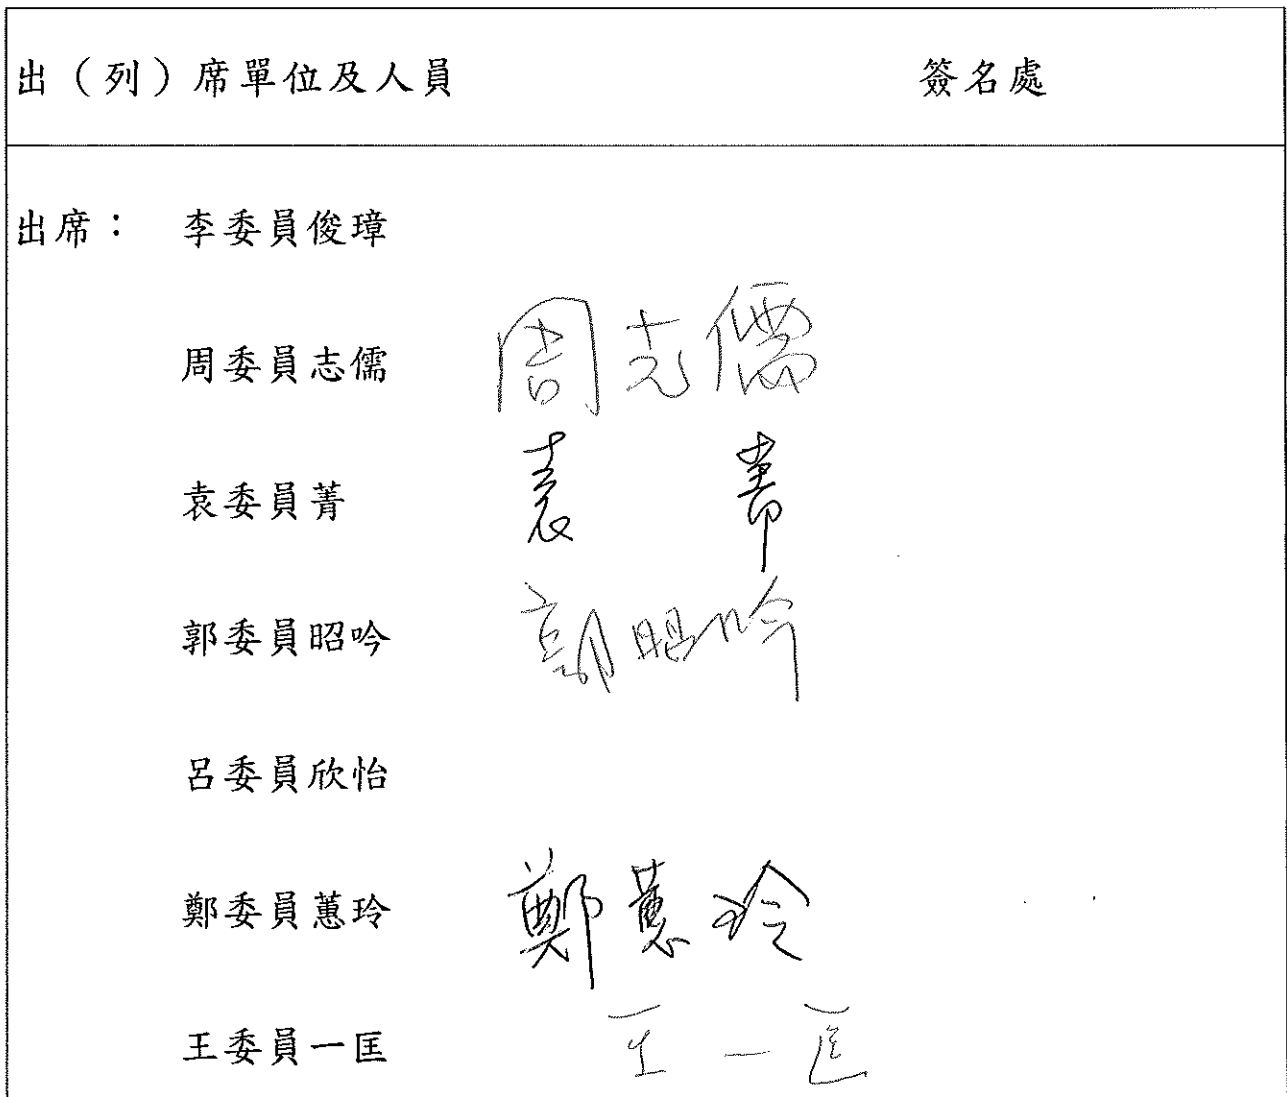 出（列）席單位及人員 簽名處
出席： 李委員俊璋
周委員志儒 周志儒
袁委員菁 袁菁
郭委員昭吟 郭昭吟
呂委員欣怡
鄭委員蕙玲 鄭蕙玲
王委員一匡 王一匡